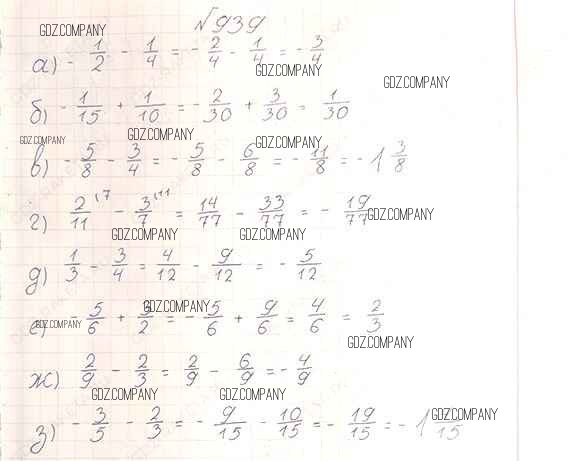 №939
GDZ.COMPANY
а) - 1/2 - 1/4 = - 2/4 - 1/4 = - 3/4
GDZ.COMPANY
GDZ.COMPANY
б) - 1/15 + 1/10 = - 2/30 + 3/30 = 1/30
GDZ.COMPANY
GDZ.COMPANY
GDZ.COMPANY
в) - 5/8 - 3/4 = - 5/8 - 6/8 = - 11/8 = - 1 3/8
г) 2/11 \7 - 3/7 \11 = 14/77 - 33/77 = - 19/77
GDZ.COMPANY
GDZ.COMPANY
GDZ.COMPANY
д) 1/3 - 3/4 = 4/12 - 9/12 = - 5/12
GDZ.COMPANY
е) - 5/6 + 3/2 = - 5/6 + 9/6 = 4/6 = 2/3
GDZ.COMPANY
GDZ.COMPANY
ж) 2/9 - 2/3 = 2/9 - 6/9 = - 4/9
GDZ.COMPANY
GDZ.COMPANY
GDZ.COMPANY
з) - 3/5 - 2/3 = - 9/15 - 10/15 = - 19/15 = - 1 /15